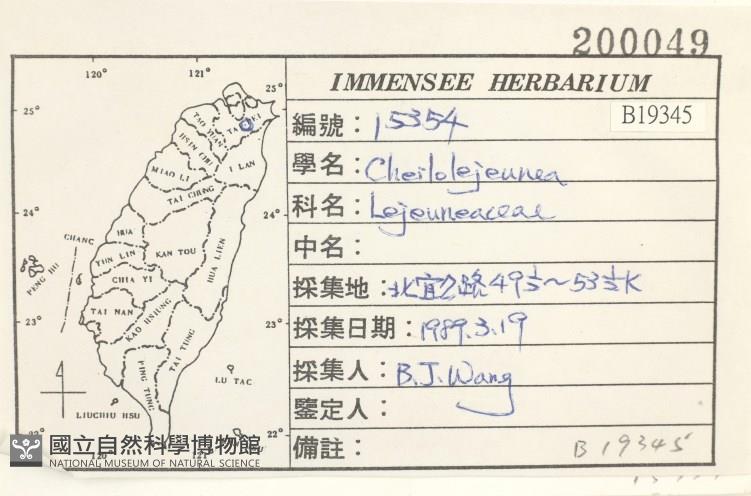 200049
IMMENSEE HERBARIUM
B19345
編號：15354
學名：Cheilolejeunea
科名：Lejeuneaceae
中名：
採集地：北宜公路49½～53½K
採集日期：1989.3.19
採集人：B.J.Wang
鑒定人：
備註：
B19345
120°
121°
25°
25°
TAIPEI
TAO YUAN
HSIN CHU
I LAN
MIAO LI
TAI CHUNG
24°
24°
CHANG
HUA
PENG HU
YUN LIN
KAN TOU
HUA LIEN
CHIA YI
TAI NAN
KAO HSIUNG
23°
23°
TAI TUNG
PING TUNG
LU TAC
LIUCHIU HSU
22°
120°
121°
國立自然科學博物館
NATIONAL MUSEUM OF NATURAL SCIENCE